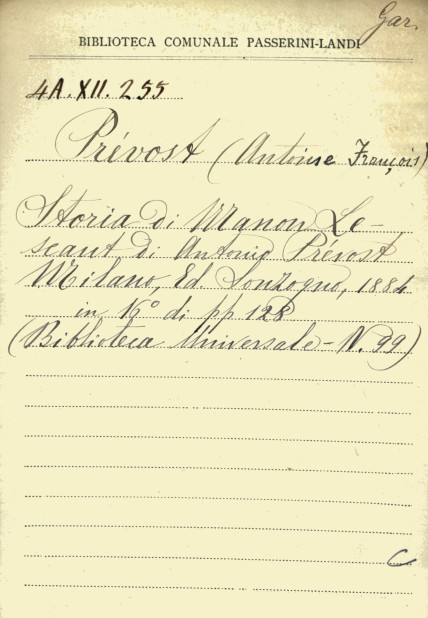 Gar.
BIBLIOTECA COMUNALE PASSERINI-LANDI
4A.XII.255
Prévost (Antoine François)
Storia di Manon Le-
scaut di Antonio Prévost
Milano, Ed. Sonzogno, 1884
in 16° di pp 128
(Biblioteca Universale - N. 99)
C